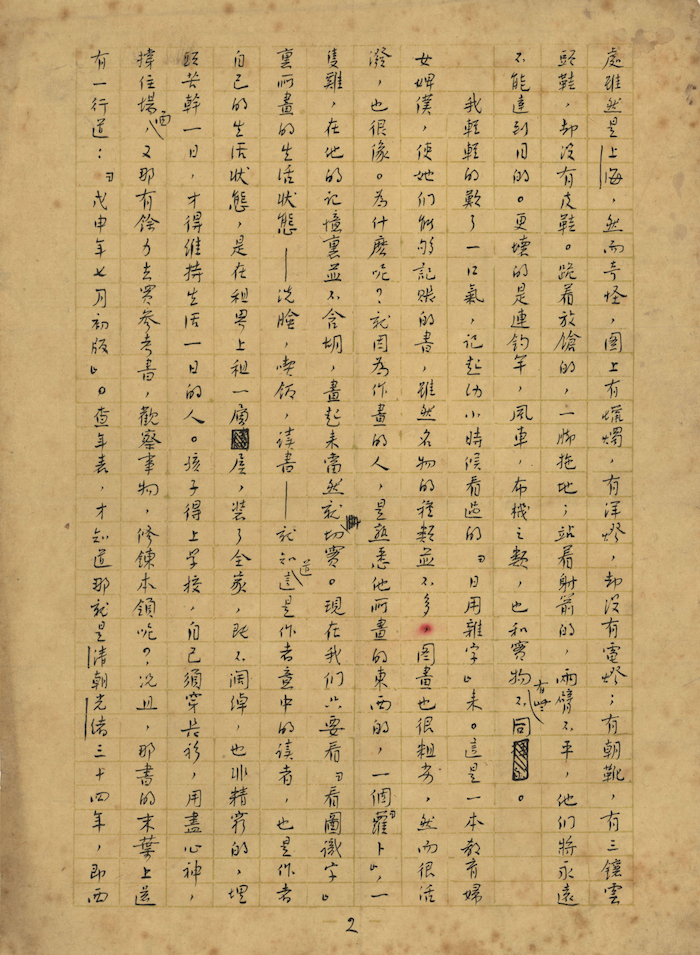 處雖然是上海,然而奇怪,圖上有蠟燭,有洋燈,却沒有電燈;有朝靴,有三鑲雲
頭鞋,却沒有皮鞋。跪着放鎗的,一脚拖地;站着射箭的,兩臂不平,他們將永遠
不能達到目的。更壞的是連釣竿,風車,布機之類,也和實物有些不同。
我輕輕的歎了一口氣,記起幼小時候看過的『日用雜字』來。這是一本教育婦
女婢僕,使她們能夠記賬的書,雖然名物的種類並不多,圖畫也很粗劣,然而很活
潑,也很像。為什麽呢?就因為作畫的人,是熟悉他所畫的東西的,一個『蘿卜』,一
隻雞,在他的記憶裏並不含胡,畫起來當然就切實。現在我們只要看『看圖識字』
裏所畫的生活狀態——洗臉,喫飯,讀書——就知道這是作者意中的讀者,也是作者
自己的生活狀態,是在租界上租一層屋,裝了全家,既不闊綽,也非精窮的,埋
頭苦幹一日,才得維持生活一日的人。孩子得上學校,自己須穿長衫,用盡心神,
撐住場面,又那有餘力去買參考書,觀察事物,修鍊本領呢?況且,那書的末葉上還
有一行道:『戊申年七月初版』。查年表,才知道那就是清朝光緒三十四年,即西
2